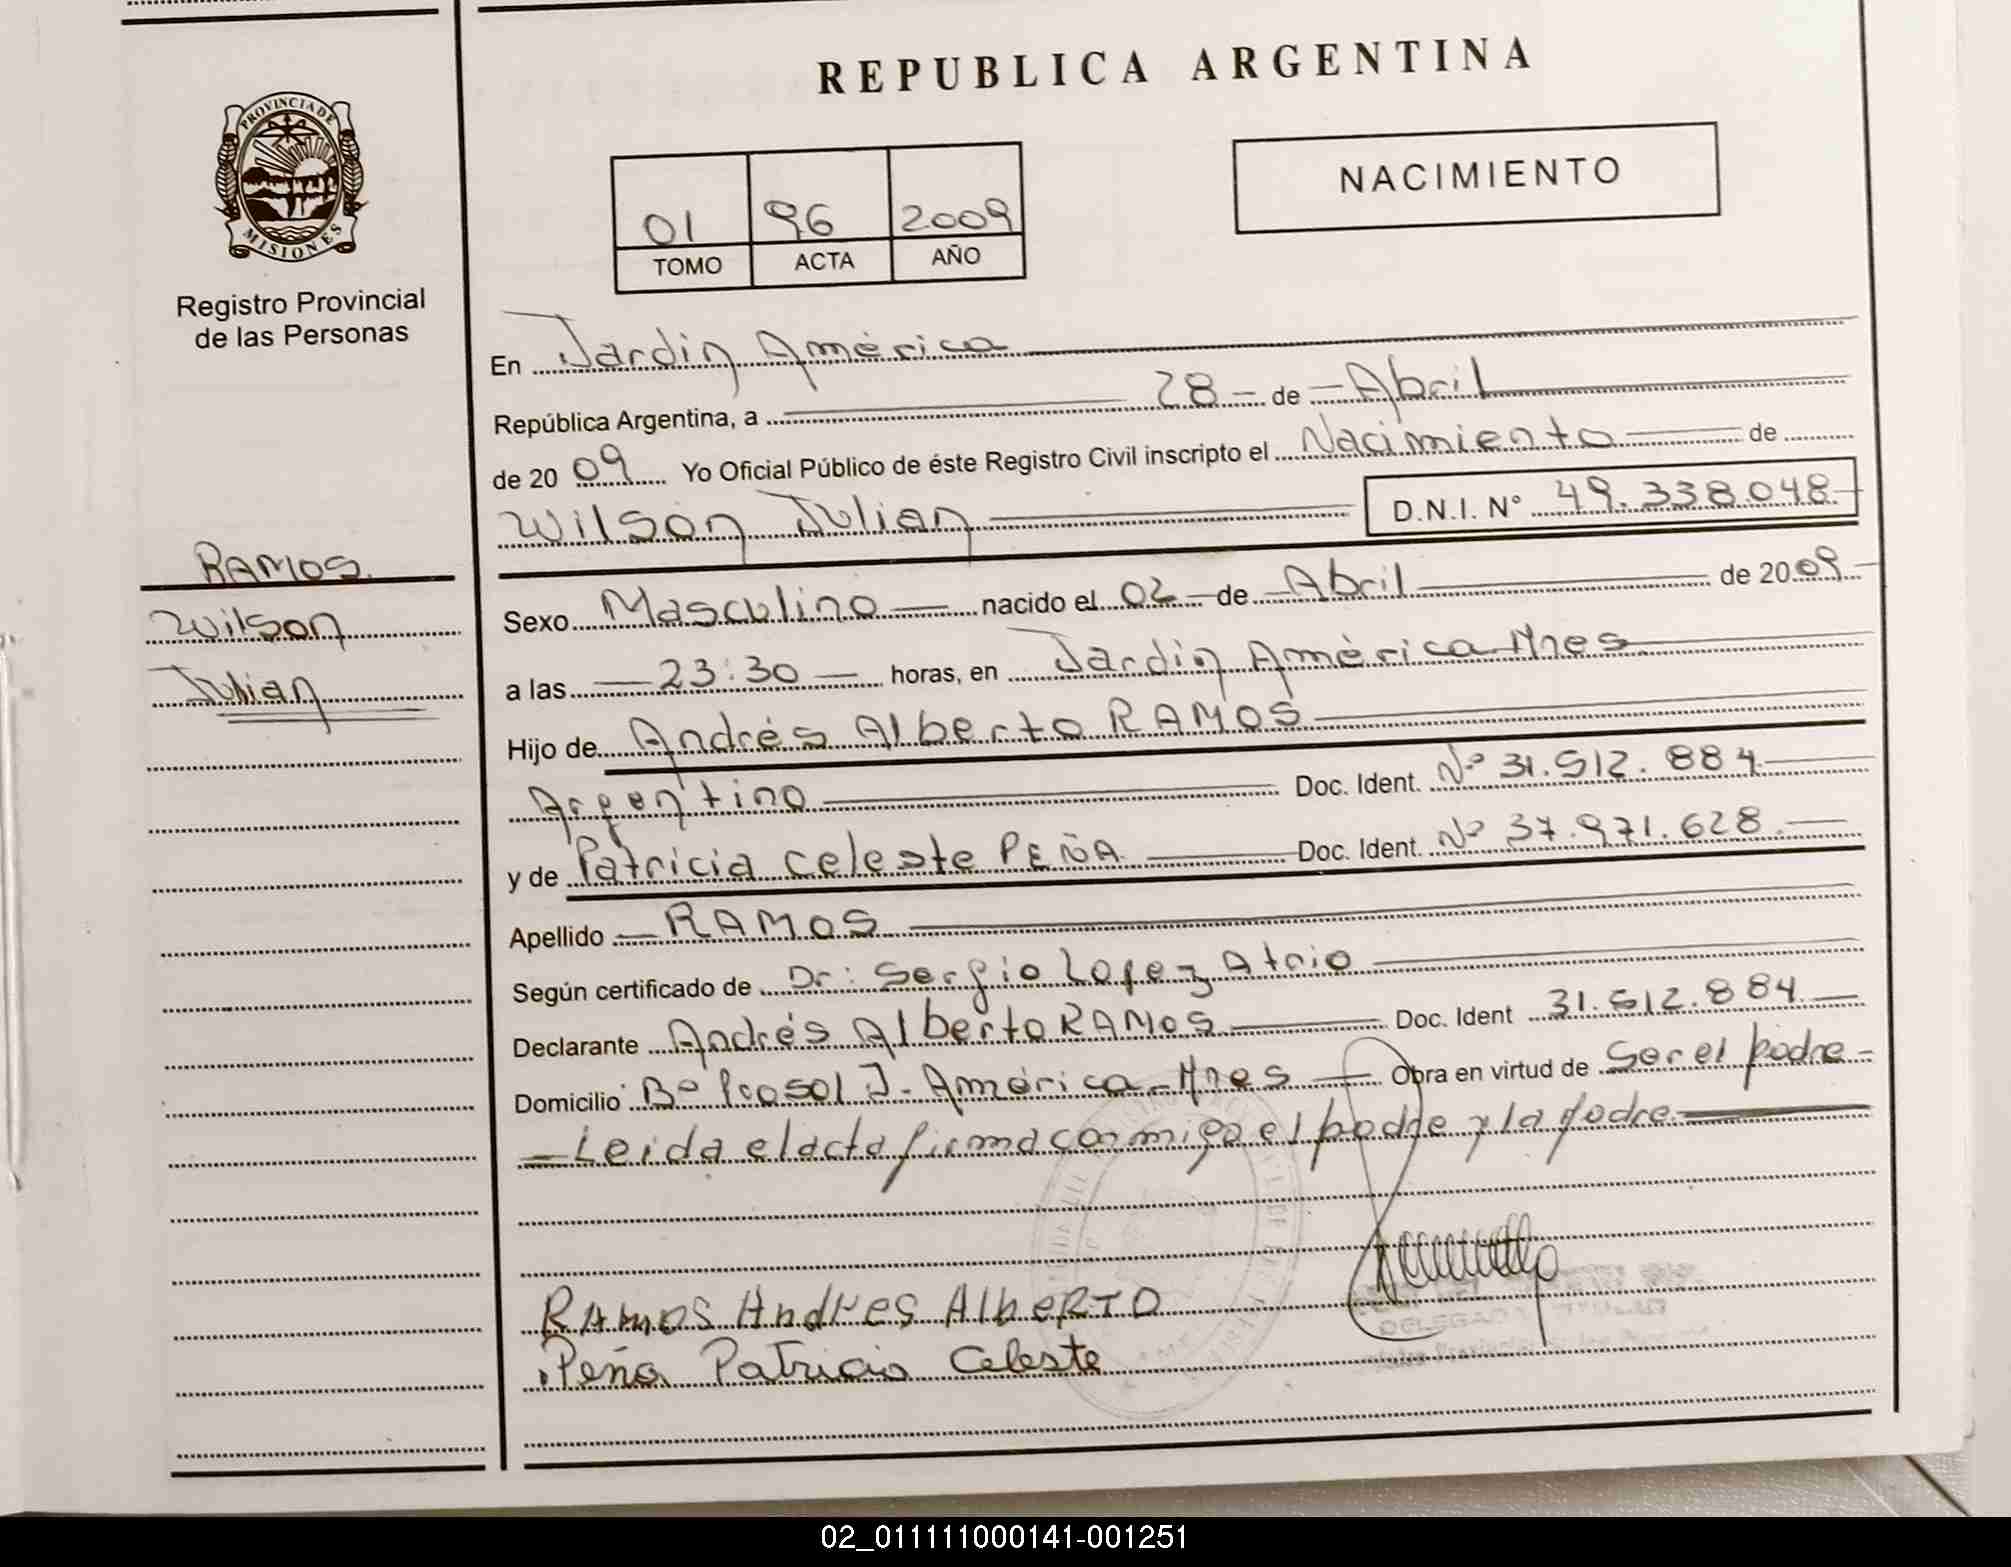 PROVINCIA DE
MISIONES
Registro Provincial
de las Personas
RAMOS.
Wilson
Julian
REPUBLICA ARGENTINA
01 96 2009
TOMO ACTA AÑO
NACIMIENTO
En Jardin América
República Argentina, a 28 de Abril
de 2009 Yo Oficial Público de éste Registro Civil inscripto el Nacimiento de
Wilson Julian D.N.I. N° 49.338.048
Sexo Masculino nacido el 02 de Abril de 2009
a las 23:30 horas, en Jardin América Mnes
Hijo de Andrés Alberto RAMOS
Argentino Doc. Ident. Nº 31.512.884
y de Patricia Celeste PEÑA Doc. Ident. Nº 37.971.628
Apellido RAMOS
Según certificado de Dr: Sergio Lopez Atrio
Declarante Andrés Alberto RAMOS Doc. Ident 31.512.884
Domicilio Bº J. América - Mnes Obra en virtud de Ser el padre
Leida el acta firma conmigo el padre y la madre
RAMOS AndRES AlbeRTO
Peña Patricia Celeste
DELEGADO TITULAR
02_011111000141-001251